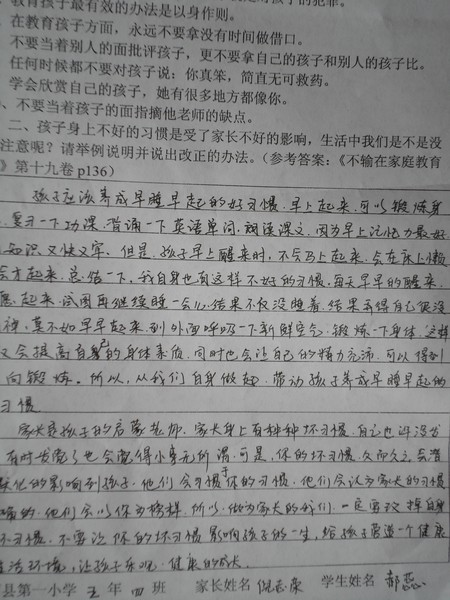 教育孩子最有效的办法是以身作则。
在教育孩子方面，永远不要拿没有时间做借口。
不要当着别人的面批评孩子，更不要拿自己的孩子和别人的孩子比。
任何时候都不要对孩子说：你真笨，简直无可救药。
学会欣赏自己的孩子，她有很多地方都像你。
、不要当着孩子的面指摘他老师的缺点。
二、孩子身上不好的习惯是受了家长不好的影响，生活中我们是不是没
注意呢？请举例说明并说出改正的办法。（参考答案：《不输在家庭教育
》第十九卷 p136）
孩子应该养成早睡早起的好习惯，早上起来，可以锻炼身
复习一下功课，背诵一下英语单词，朗读课文，因为早上记忆力最好
知识又快又牢，但是，孩子早上醒来时，不会马上起来，会在床上懒
会才起来，总结一下，我自身也有这样不好的习惯，每天早早的醒来，
愿起来，试图再继续睡一会儿，结果不仅没睡着，结果弄得自己很没
神，莫不如早早起来，到外面呼吸一下新鲜空气，锻炼一下身体，这样
又会提高自己的身体素质，同时也会让自己的精力充沛，可以得到
向锻炼。所以，从我们自身做起，带动孩子养成早睡早起的
习惯。
家长是孩子的启蒙老师，家长身上有种种坏习惯，自己也许没发
有时发觉了也会觉得小事无所谓，可是，你的坏习惯，久而久之会潜
默化的影响到孩子，他们会习惯于你的习惯，他们会认为家长的习惯
的，他们会以你为榜样，所以，做为家长的我们，一定要改掉自身
不习惯，不要让你的坏习惯影响孩子的一生，给孩子营造一个健康
生活环境，让孩子乐观、健康的成长。
县第一小学 五 年 四 班 家长姓名 倪 荣 学生姓名 郝蕊